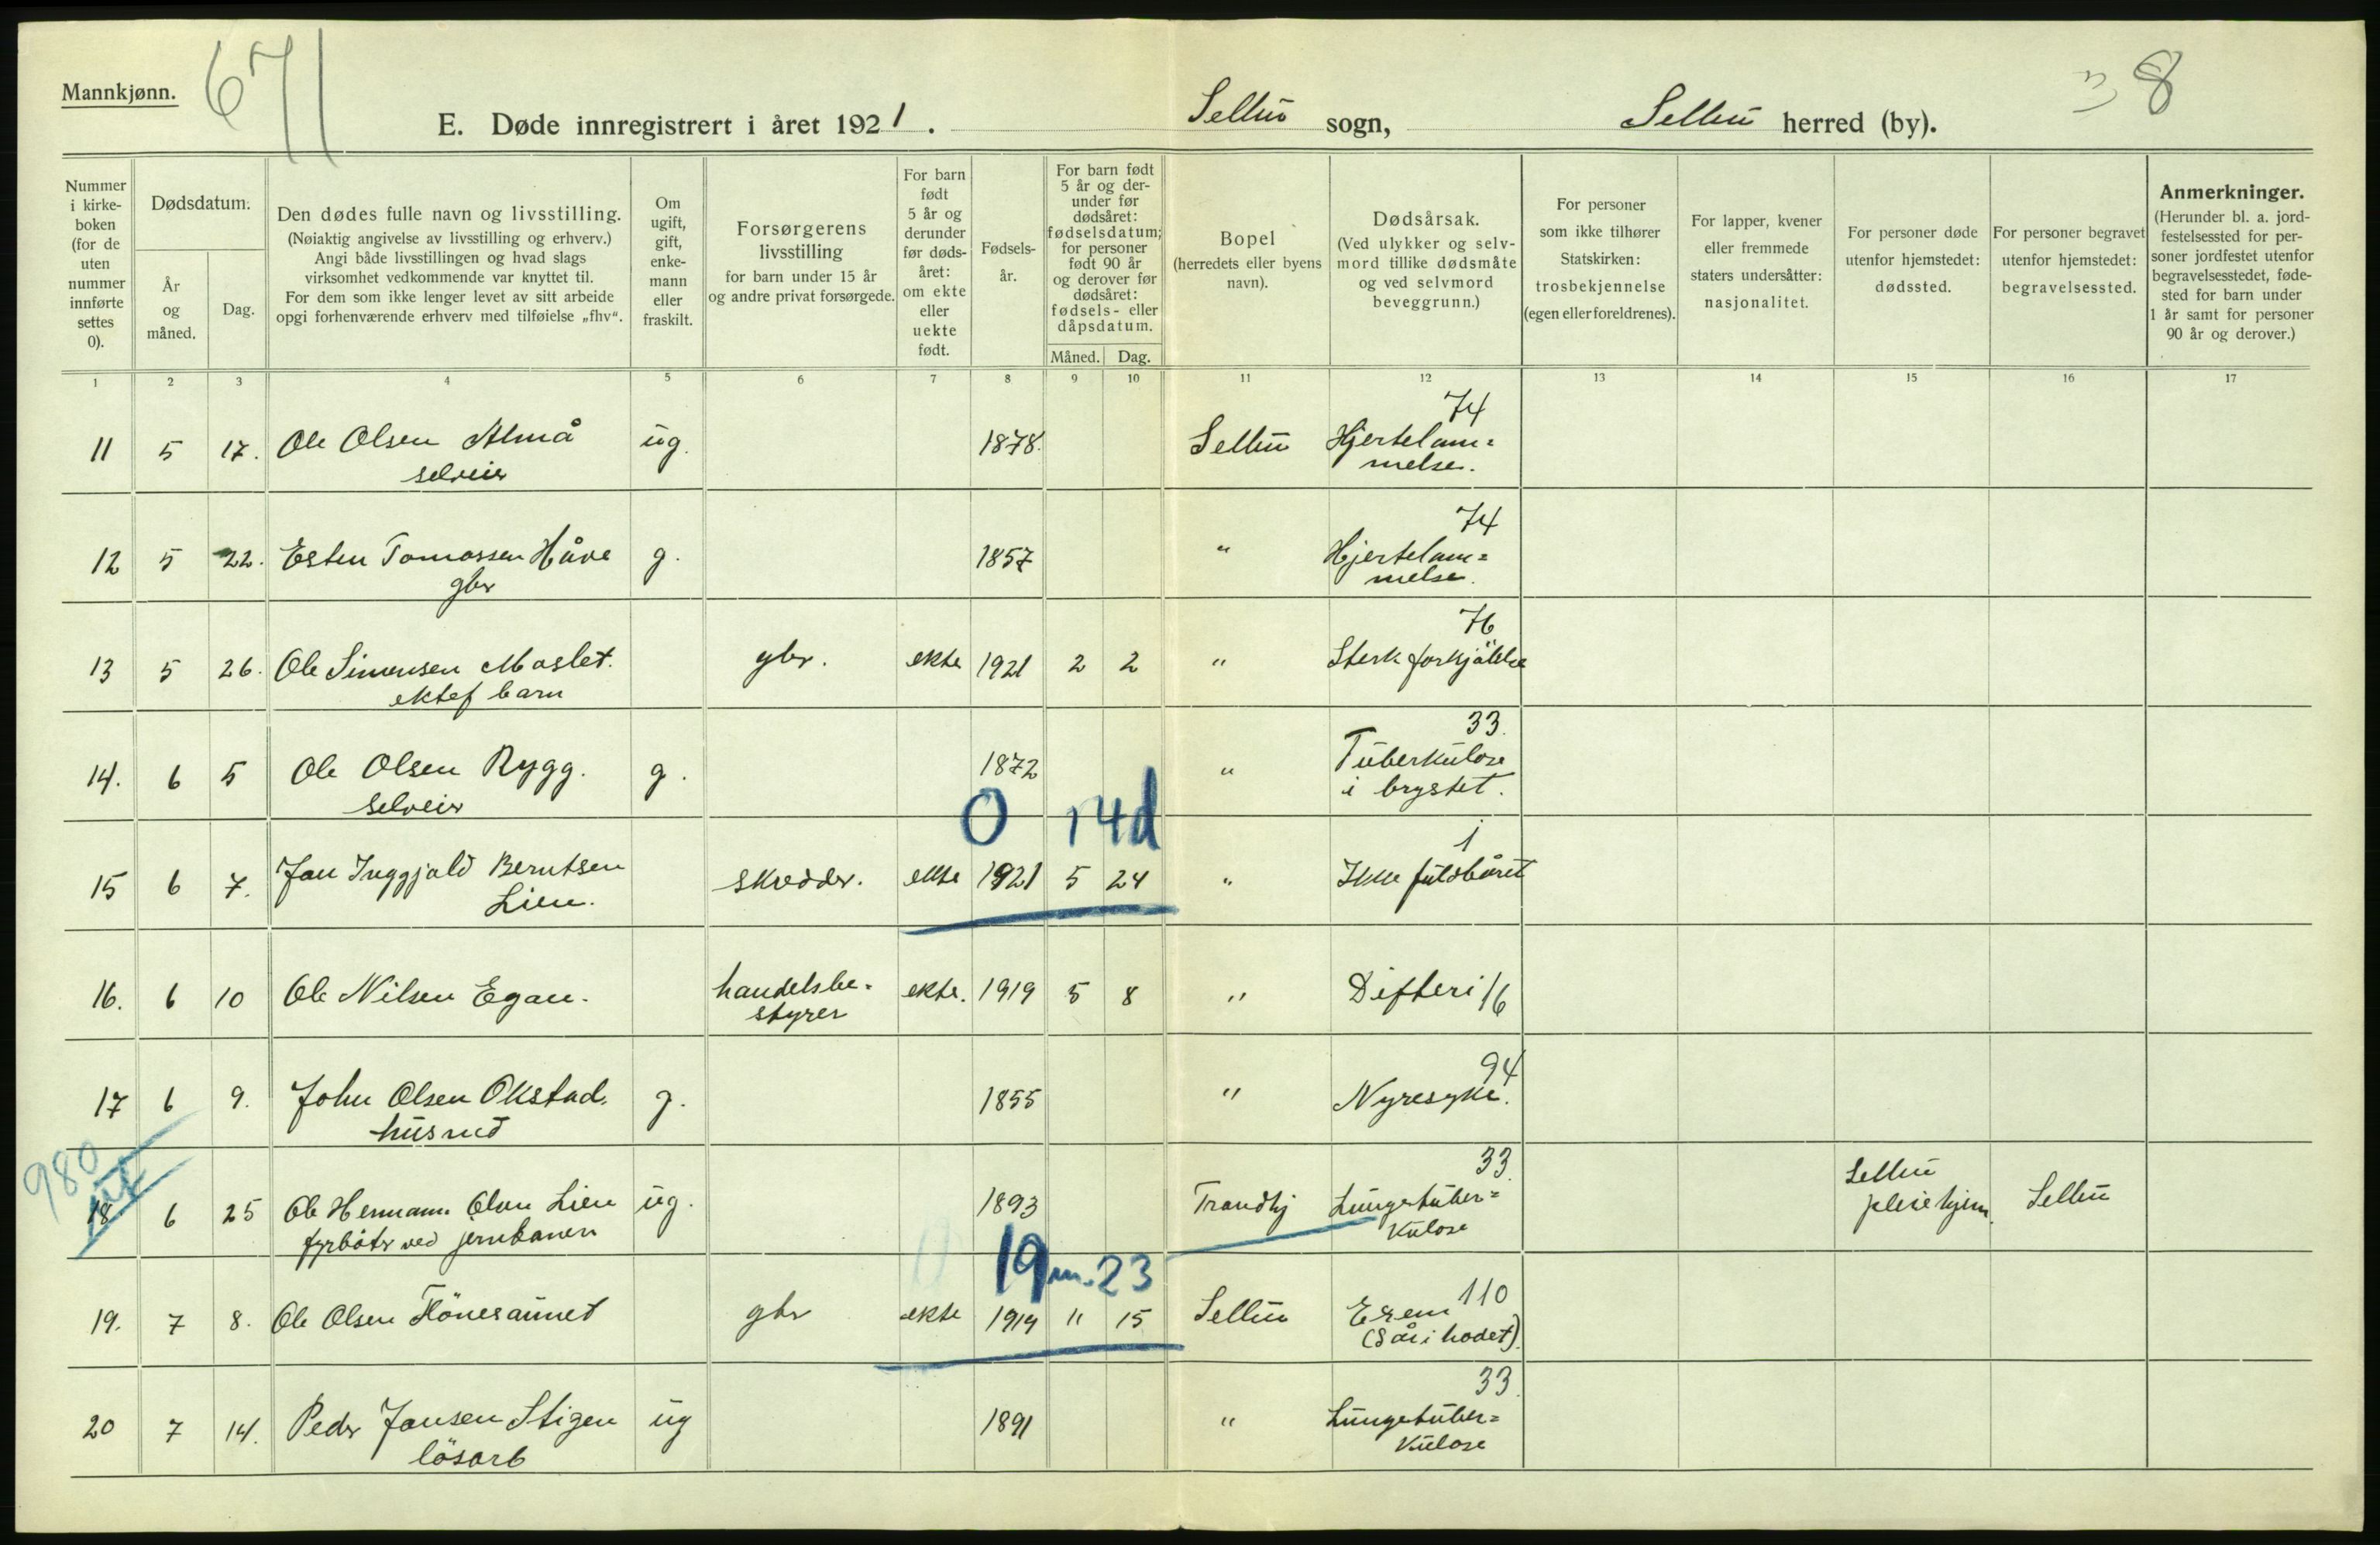 Mannkjønn.
671
E. Døde innregistrert i året 1921. Selbu sogn, Selbu herred (by).
8
Nummer i kirkeboken (for de uten nummer innførte settes 0).
Dødsdatum:
År og måned.
Dag.
Den dødes fulle navn og livsstilling.
(Nøiaktig angivelse av livsstilling og erhverv.)
Angi både livsstillingen og hvad slags
virksomhet vedkommende var knyttet til.
For dem som ikke lenger levet av sitt arbeide
opgi forhenværende erhverv med tilføielse „fhv“.
Om ugift, gift, enkemann eller fraskilt.
Forsørgerens livsstilling
for barn under 15 år
og andre privat forsørgede.
For barn født 5 år og derunder før dødsåret: om ekte eller uekte født.
Fødselsår.
For barn født 5 år og derunder før dødsåret: fødselsdatum; for personer født 90 år og derover før dødsåret: fødsels- eller dåpsdatum.
Måned. Dag.
Bopel
(herredets eller byens navn).
Dødsårsak.
(Ved ulykker og selvmord tillike dødsmåte og ved selvmord beveggrunn.)
For personer som ikke tilhører Statskirken: trosbekjennelse (egen eller foreldrenes).
For lapper, kvener eller fremmede staters undersåtter: nasjonalitet.
For personer døde utenfor hjemstedet: dødssted.
For personer begravet utenfor hjemstedet: begravelsessted.
Anmerkninger.
(Herunder bl. a. jordfestelsessted for personer jordfestet utenfor begravelsesstedet, fødested for barn under 1 år samt for personer 90 år og derover.)
1 2 3 4 5 6 7 8 9 10 11 12 13 14 15 16 17
74
11 5 17. Ole Olsen Almå ug. 1878. Selbu Hjertelam=
selveier melse.
74
12 5 22. Esten Tomassen Håve g. 1857 " Hjertelam=
gbr melse.
76
13 5 26. Ole Simonsen Moslet. gbr. ekte 1921 2 2 " Sterk forkjölelse
ektef barn
33.
14. 6 5 Ole Olsen Rygg. g. 1872 " Tuberkulose
selveier i brystet.
0 14d
1
15 6 7. Jon Inggjald Berntsen skredder. ekte 1921 5 24 " Ikke fuldbåret
Lien.
16. 6 10 Ole Nilsen Egan. handelsbe= ekte. 1919 5 8 " Difteri 16
styrer
94
17 6 9. John Olsen Okstad. g. 1855 " Nyresyke.
husmd
980
ut
33
18. 6 25 Ole Hermann Olsen Lien ug. 1893 Trondhj Lungetuber= Selbu Selbu
fyrböter ved jernbanen kulose pleiehjem.
19 m. 23
19. 7 8. Ole Olsen Flönesaunet gbr ekte 1919 11 15 Selbu Exem 110
(Sår i hodet).
33.
20 7 14. Peder Jonsen Stigen ug 1891 " Lungetuber=
lösarb kulose